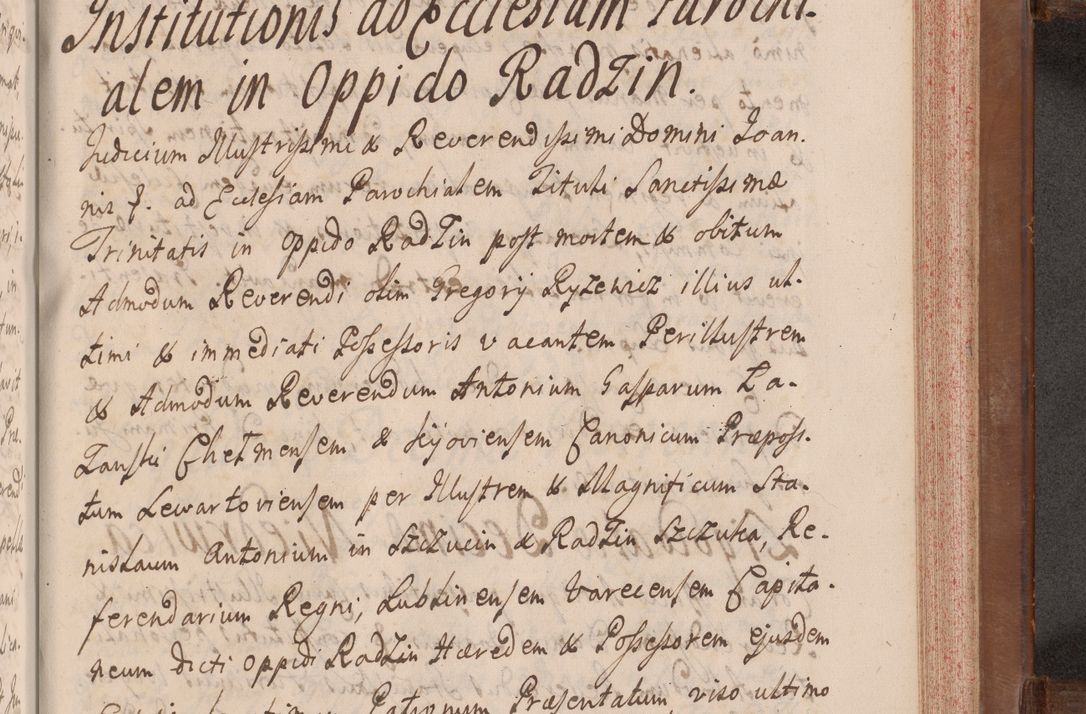 Institutionis ad Ecclesiam Parochi-
alem in Oppido Radzin.
Judicium Illustrissimi & Reverendissimi Domini Joan.
nis f. ad Ecclesiam Parochialem Tituli Sanctissimæ
Trinitatis in oppido Radzin post mortem & obitum
Admodum Reverendi olim Gregorij Ryzewicz illius ul-
timi & immediati Possessoris vacantem Perillustrem
& Admodum Reverendum Antonium Gasparum Za-
Chełmensem & Kijoviensem Canonicum Præposi-
tum Lewartoviensem per Illustrem & Magnificum Sta-
nislaum Antonium in Szczucin & Radzin Szczuka, Re-
ferendarium Regni, Lublinensem Varecensem Capita-
neum dicti oppidi Radzin Hæredem & Possessorem ejusdem
Patronum Præsentatum, viso ultimo